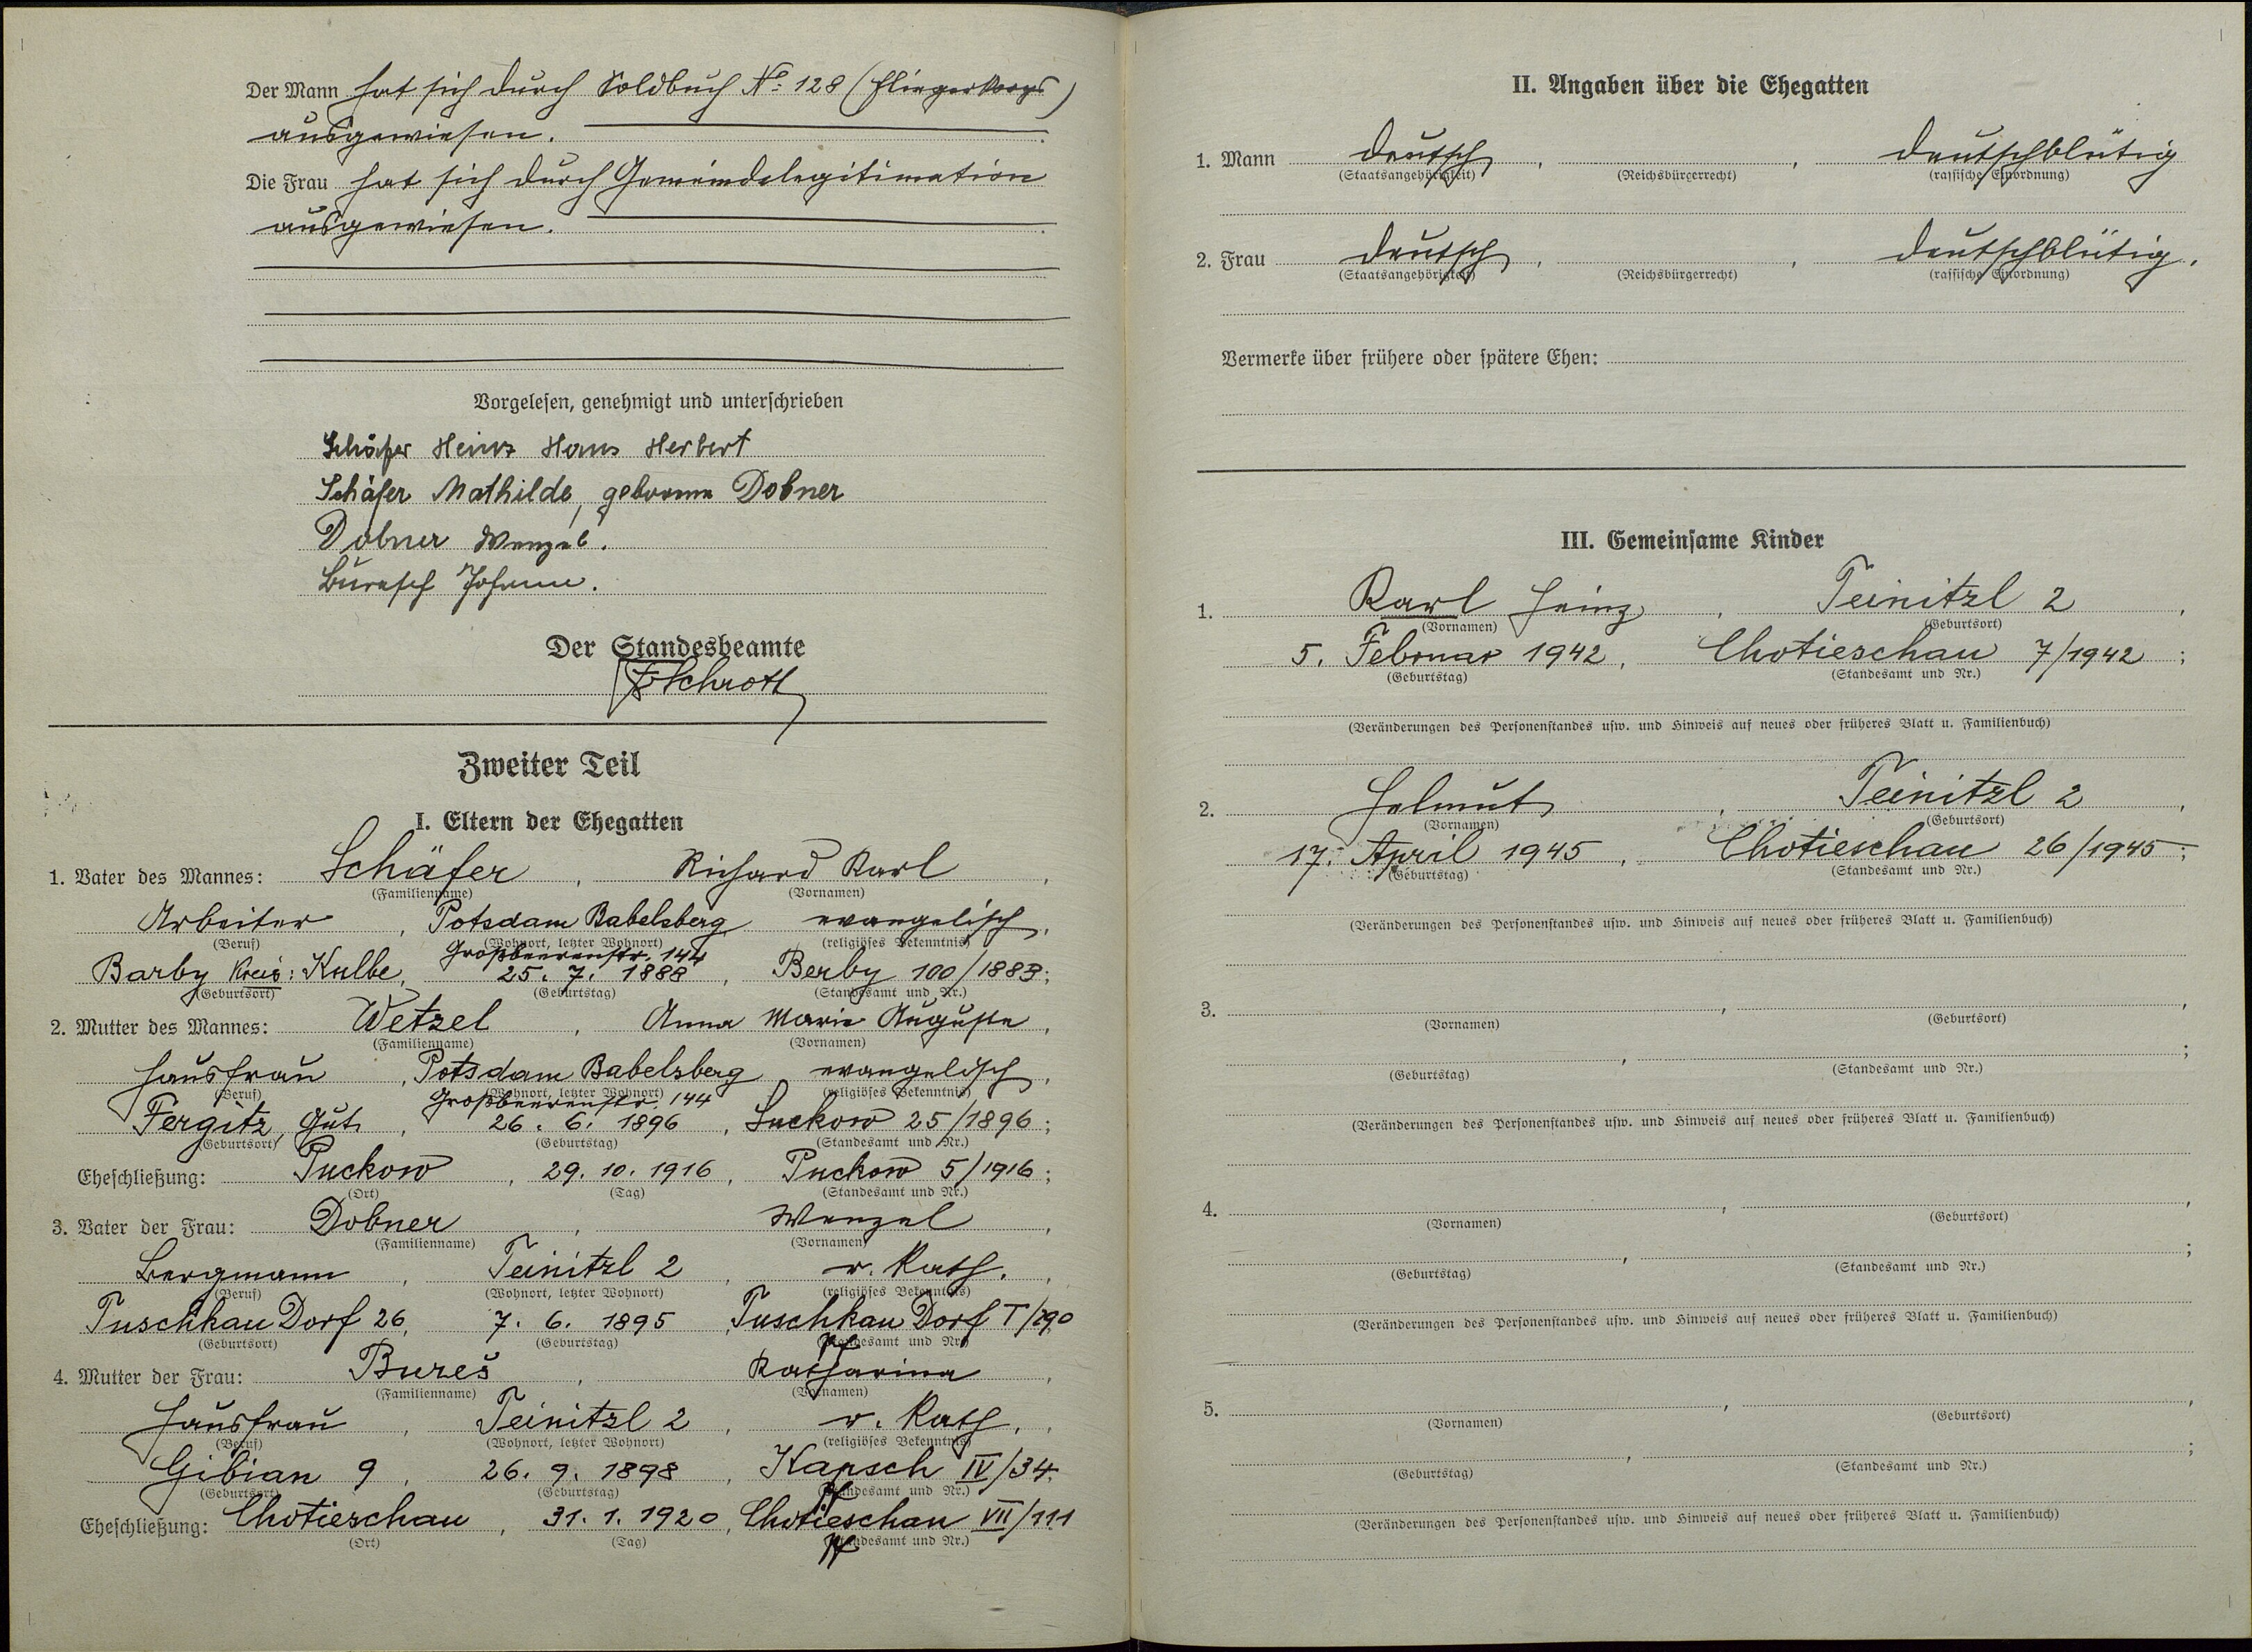 Der Mann hat sich durch Soldbuch No: 128 (Fliegerkorps)
ausgewiesen.
Die Frau hat sich durch Gemeindelegitimation
ausgewiesen.
Vorgelesen, genehmigt und unterschrieben
Schäfer Heinz Hans Herbert
Schäfer Mathilde, geborene Dobner
Dobner Wenzel.
Buresch Johann.
Der Standesbeamte
Schrott
Zweiter Teil
I. Eltern der Ehegatten
1. Vater des Mannes: Schäfer, Richard Karl,
(Familienname) (Vornamen)
Arbeiter, Potsdam Babelsberg evangelisch,
(Beruf) (Wohnort, letzter Wohnort) (religiöses Bekenntnis)
Großbeerenstr. 144
Barby Kreis: Kalbe, 25. 7. 1888, Berby 100/1883;
(Geburtsort) (Geburtstag) (Standesamt und Nr.)
2. Mutter des Mannes: Wetzel, Anna Marie Auguste,
(Familienname) (Vornamen)
Hausfrau, Potsdam Babelsberg evangelisch,
(Beruf) (Wohnort, letzter Wohnort) (religiöses Bekenntnis)
Großbeerenstr. 144
Fergitz, Gut, 26. 6. 1896, Suckow 25/1896;
(Geburtsort) (Geburtstag) (Standesamt und Nr.)
Eheschließung: Puckow, 29. 10. 1916, Puckow 5/1916;
(Ort) (Tag) (Standesamt und Nr.)
3. Vater der Frau: Dobner, Wenzel,
(Familienname) (Vornamen)
Bergmann, Teinitzl 2, r. kath.,
(Beruf) (Wohnort, letzter Wohnort) (religiöses Bekenntnis)
Tuschkau Dorf 26, 7. 6. 1895, Tuschkau Dorf T/290
(Geburtsort) (Geburtstag) (Standesamt und Nr.)
4. Mutter der Frau: Bureš, Katharina,
(Familienname) (Vornamen)
Hausfrau, Teinitzl 2, r. kath.,
(Beruf) (Wohnort, letzter Wohnort) (religiöses Bekenntnis)
Gibian 9, 26. 9. 1898, Kapsch IV/34;
(Geburtsort) (Geburtstag) (Standesamt und Nr.)
Eheschließung: Chotieschau, 31. 1. 1920, Chotieschau VII/111
(Ort) (Tag) (Standesamt und Nr.)
II. Angaben über die Ehegatten
1. Mann deutsch, , deutschblütig
(Staatsangehörigkeit) (Reichsbürgerrecht) (rassische Einordnung)
2. Frau deutsch, , deutschblütig.
(Staatsangehörigkeit) (Reichsbürgerrecht) (rassische Einordnung)
Vermerke über frühere oder spätere Ehen:
III. Gemeinsame Kinder
1. Karl Heinz, Teinitzl 2,
(Vornamen) (Geburtsort)
5. Februar 1942, Chotieschau 7/1942;
(Geburtstag) (Standesamt und Nr.)
(Veränderungen des Personenstandes usw. und Hinweis auf neues oder früheres Blatt u. Familienbuch)
2. Helmut, Teinitzl 2,
(Vornamen) (Geburtsort)
17. April 1945, Chotieschau 26/1945;
(Geburtstag) (Standesamt und Nr.)
(Veränderungen des Personenstandes usw. und Hinweis auf neues oder früheres Blatt u. Familienbuch)
3. , ,
(Vornamen) (Geburtsort)
, ;
(Geburtstag) (Standesamt und Nr.)
(Veränderungen des Personenstandes usw. und Hinweis auf neues oder früheres Blatt u. Familienbuch)
4. , ,
(Vornamen) (Geburtsort)
, ;
(Geburtstag) (Standesamt und Nr.)
(Veränderungen des Personenstandes usw. und Hinweis auf neues oder früheres Blatt u. Familienbuch)
5. , ,
(Vornamen) (Geburtsort)
, ;
(Geburtstag) (Standesamt und Nr.)
(Veränderungen des Personenstandes usw. und Hinweis auf neues oder früheres Blatt u. Familienbuch)